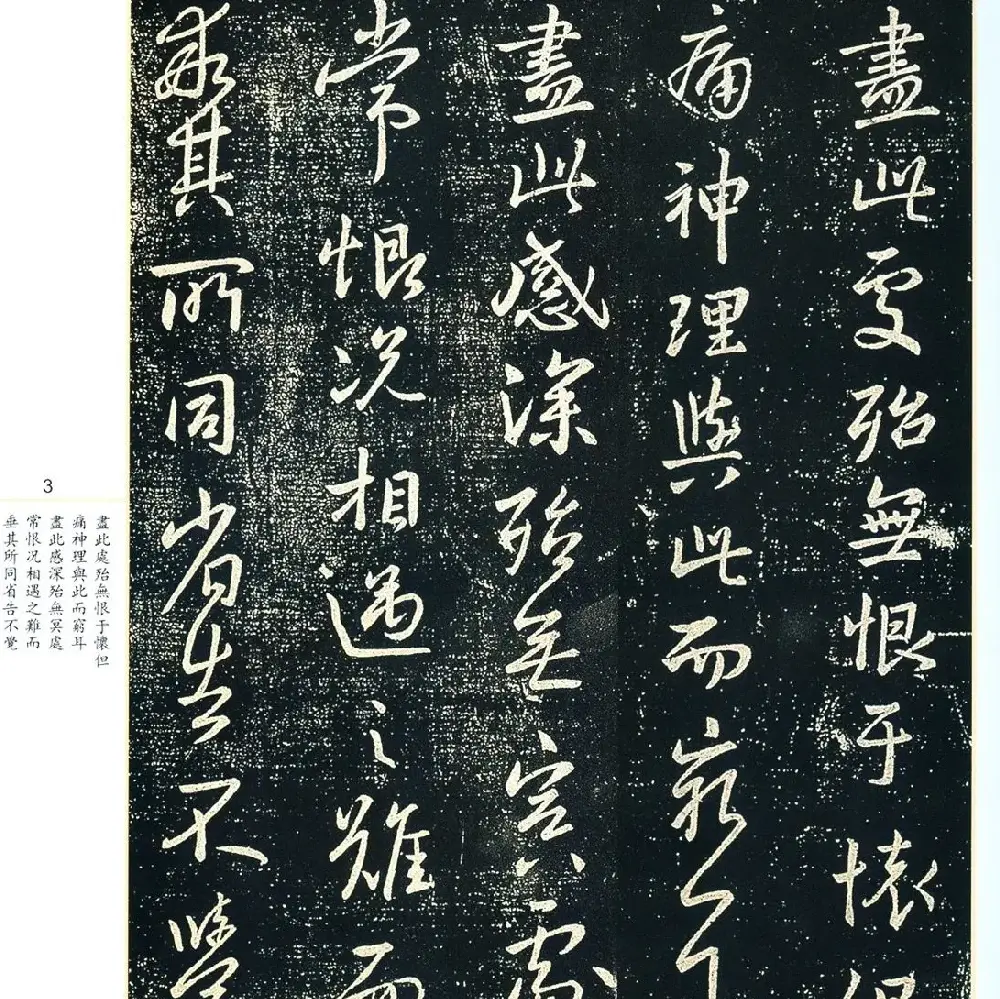 盡此處殆無恨于懷但
痛神理與此而窮耳
盡此感深殆無冥處
常恨況相遇之難而
乖其所同省告不覺
3
盡此處殆無恨于懷但
痛神理與此而窮耳
盡此感深殆無冥處
常恨况相遇之難而
乖其所同省告不覺